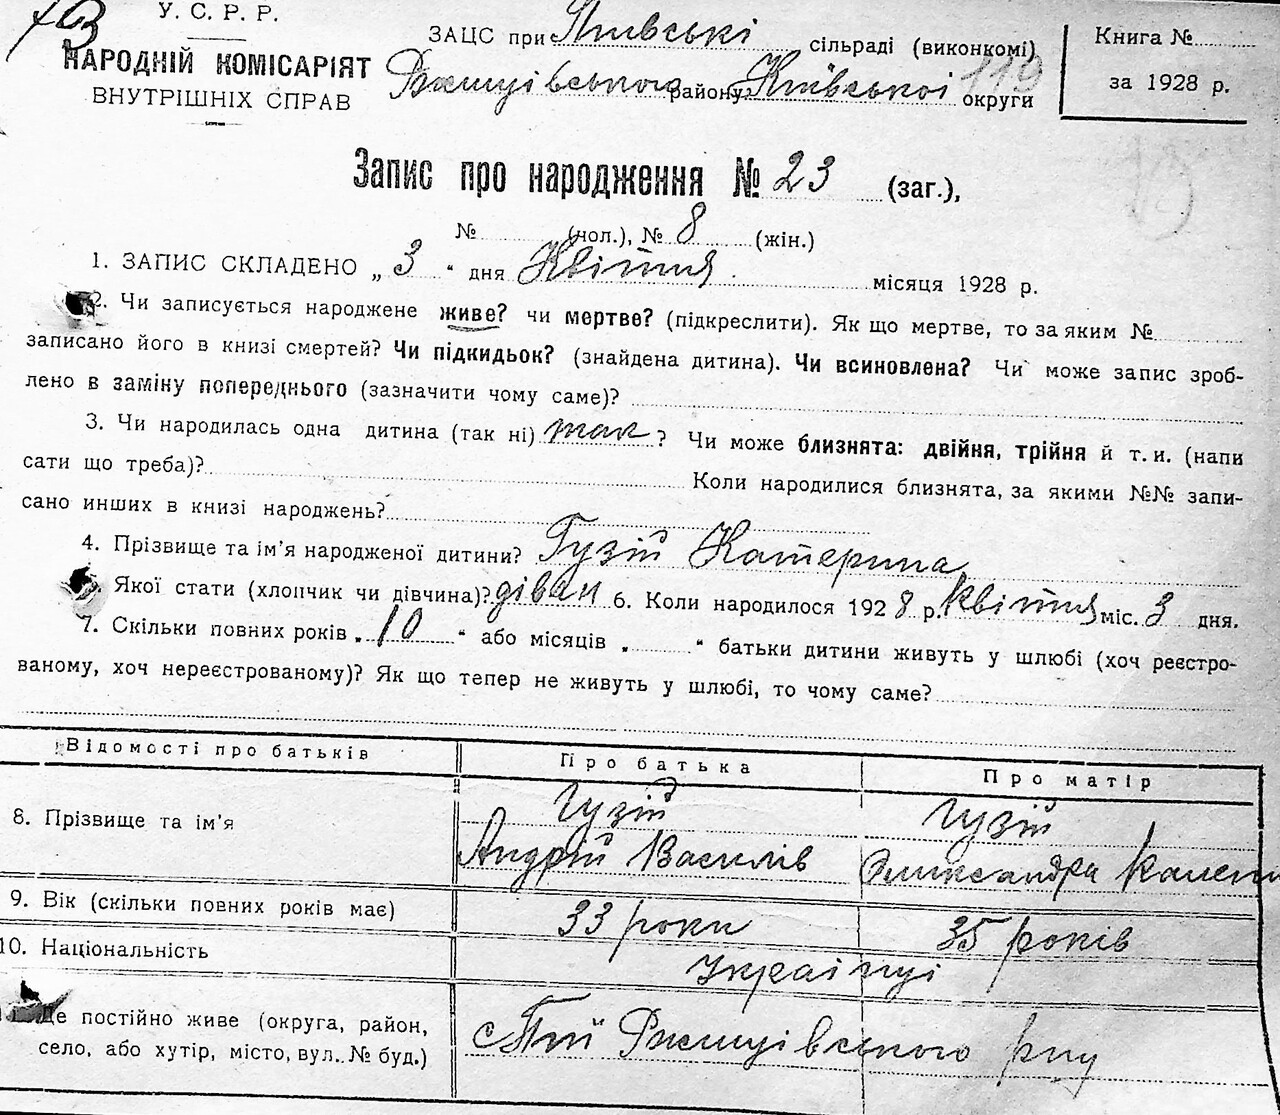 У. С. Р. Р.
НАРОДНІЙ КОМІСАРІЯТ
ВНУТРІШНІХ СПРАВ
ЗАЦС при сільраді (виконкомі)
Ржищівського району Київської округи
119
Книга №
за 1928 р.
Запис про народження № 23 (заг.),
№ (чол.), № 8 (жін.)
1. ЗАПИС СКЛАДЕНО „ 3 “ дня Квітня місяця 1928 р.
2. Чи записується народжене живе? чи мертве? (підкреслити). Як що мертве, то за яким №
записано його в книзі смертей? Чи підкидьок? (знайдена дитина). Чи всиновлена? Чи може запис зроб-
лено в заміну попереднього (зазначити чому саме)?
3. Чи народилась одна дитина (так ні) так? Чи може близнята: двійня, трійня й т. и. (напи
сати що треба)? Коли народилися близнята, за якими №№ запи-
сано инших в книзі народжень?
4. Прізвище та ім'я народженої дитини? Гузій Катерина
Якої стати (хлопчик чи дівчина)? 6. Коли народилося 1928 р. Квітня міс. 3 дня.
7. Скільки повних років „ 10 “ або місяців „ “ батьки дитини живуть у шлюбі (хоч реєстро-
ваному, хоч нереєстрованому)? Як що тепер не живуть у шлюбі, то чому саме?
Відомості про батьків Про батька Про матір
8. Прізвище та ім'я Гузій Гузій
Андрій Василів Олександра
9. Вік (скільки повних років має) 33 роки 35 років
10. Національність Українці
Де постійно живе (округа, район,
село, або хутір, місто, вул. № буд.) с Ржищівського рну